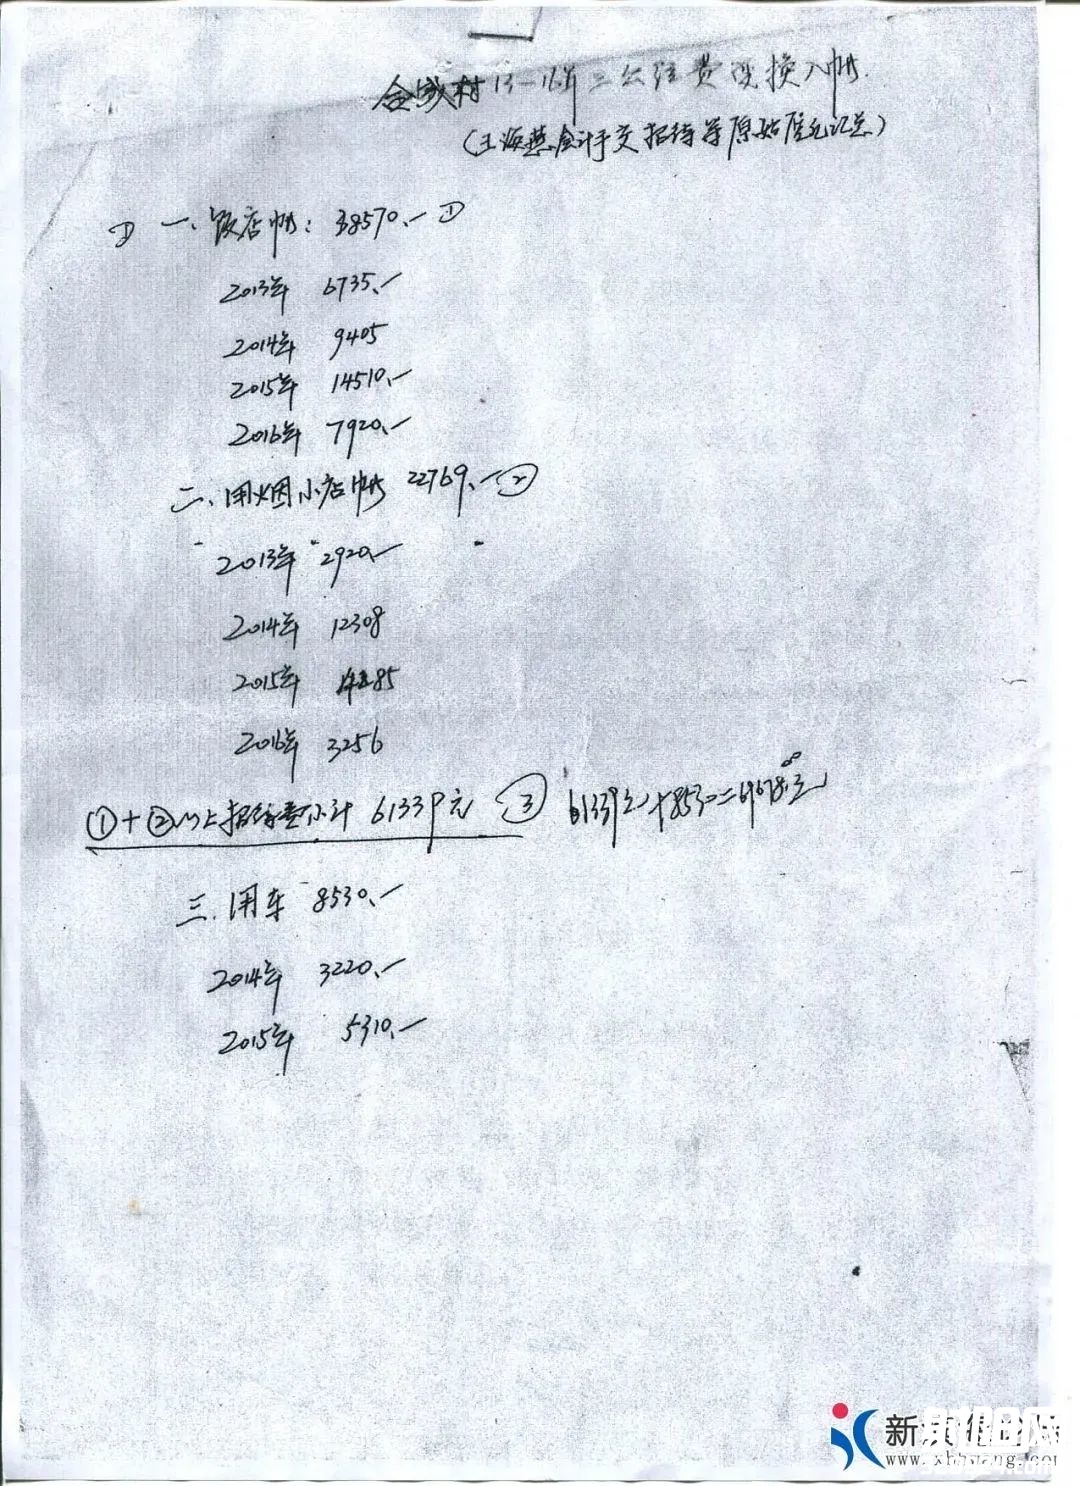 合城村13-16年三公经费现换入帐
(王海燕会计手交招待等原始凭证汇总)
② 一、饭店帐: 38570.— ①
2013年 6735.—
2014年 9405
2015年 14510.—
2016年 7920.—
二、用烟小店帐 22769.— ②
2013年 2920.—
2014年 12308
2015年 4285
2016年 3256
①+②以上招待费小计 61339元 ③ 61339元+8530=69678.00元
三.用车 8530.—
2014年 3220.—
2015年 5310.—
新
www.xbhwang.com